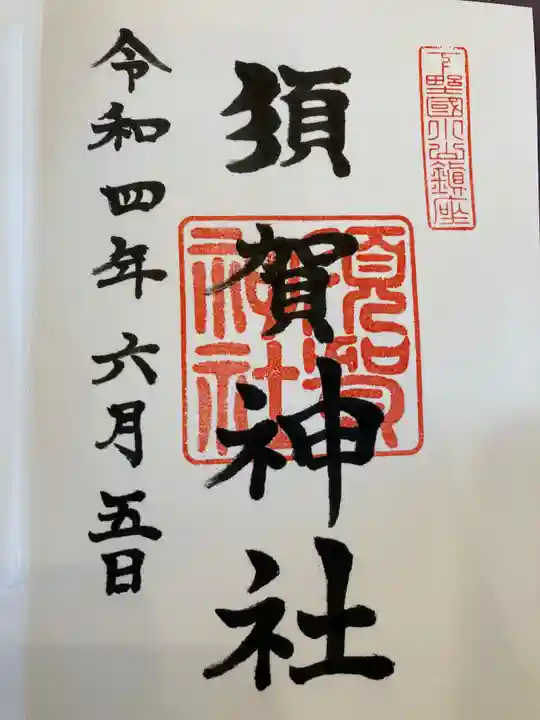 下野國小山鎮座
須賀神社
須賀神社
令和四年六月五日